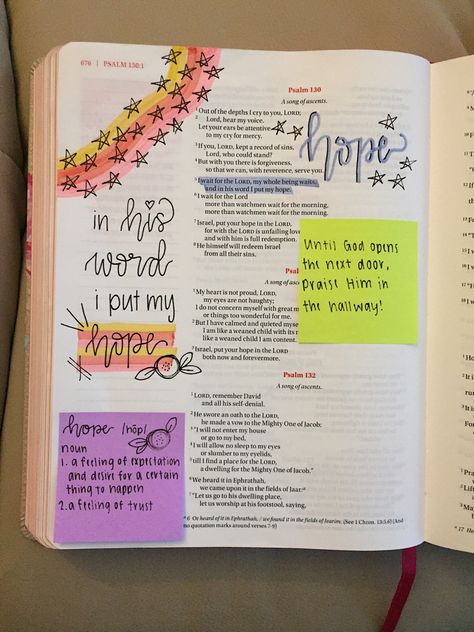 676 | PSALM 130:1
Psalm 130
A song of ascents.
1 Out of the depths I cry to you, LORD;
2 Lord, hear my voice.
Let your ears be attentive
to my cry for mercy.
3 If you, LORD, kept a record of sins,
Lord, who could stand?
4 But with you there is forgiveness,
so that we can, with reverence, serve you.
5 I wait for the LORD, my whole being waits,
and in his word I put my hope.
6 I wait for the Lord
more than watchmen wait for the morning,
more than watchmen wait for the morning.
7 Israel, put your hope in the LORD,
for with the LORD is unfailing love
and with him is full redemption.
8 He himself will redeem Israel
from all their sins.
hope
in his
word
i put my
hope
Until God opens
the next door,
Praise Him in
the hallway!
A song of ascents.
1 My heart is not proud, LORD,
my eyes are not haughty;
I do not concern myself with great
or things too wonderful for me.
2 But I have calmed and quieted myself
I am like a weaned child with its
like a weaned child I am content.
3 Israel, put your hope in the LORD
both now and forevermore.
hope /hōp/
noun
1. a feeling of expectation
and desire for a certain
thing to happen
2. a feeling of trust
Psalm 132
A song of ascents.
1 LORD, remember David
and all his self-denial.
2 He swore an oath to the LORD,
he made a vow to the Mighty One of Jacob:
3 "I will not enter my house
or go to my bed,
4 I will allow no sleep to my eyes
or slumber to my eyelids,
5 till I find a place for the LORD,
a dwelling for the Mighty One of Jacob."
6 We heard it in Ephrathah,
we came upon it in the fields of Jaar:
7 "Let us go to his dwelling place,
let us worship at his footstool, saying,
a 6 Or heard of it in Ephrathah, / we found it in the fields of Jearim. (See 1 Chron. 13:5,6) (And
no quotation marks around verses 7-9)